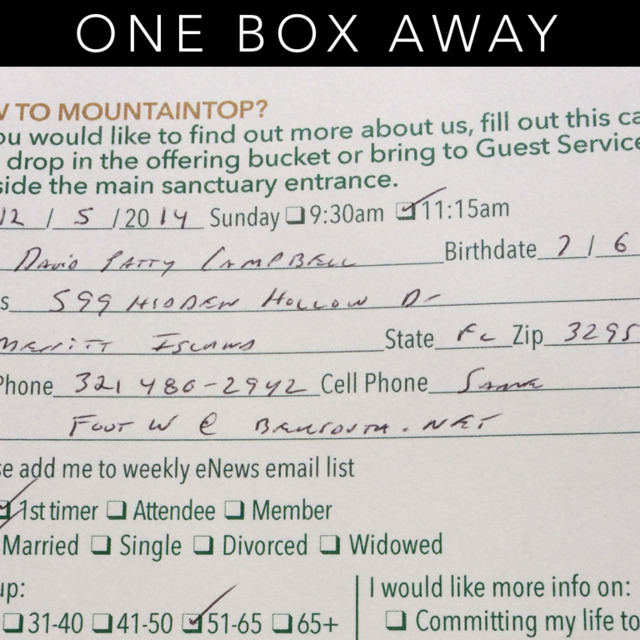 ONE BOX AWAY
W TO MOUNTAINTOP?
ou would like to find out more about us, fill out this ca
drop in the offering bucket or bring to Guest Service
side the main sanctuary entrance.
12 / 5 /2014 Sunday 9:30am 11:15am
David Patty Campbell Birthdate 7 / 6
s 599 Hidden Hollow Dr
Merritt Island State FL Zip 3295
Phone 321 480-2942 Cell Phone Same
Foot W @ Bellsouth.net
se add me to weekly eNews email list
1st timer Attendee Member
Married Single Divorced Widowed
up: I would like more info on:
31-40 41-50 51-65 65+ Committing my life to